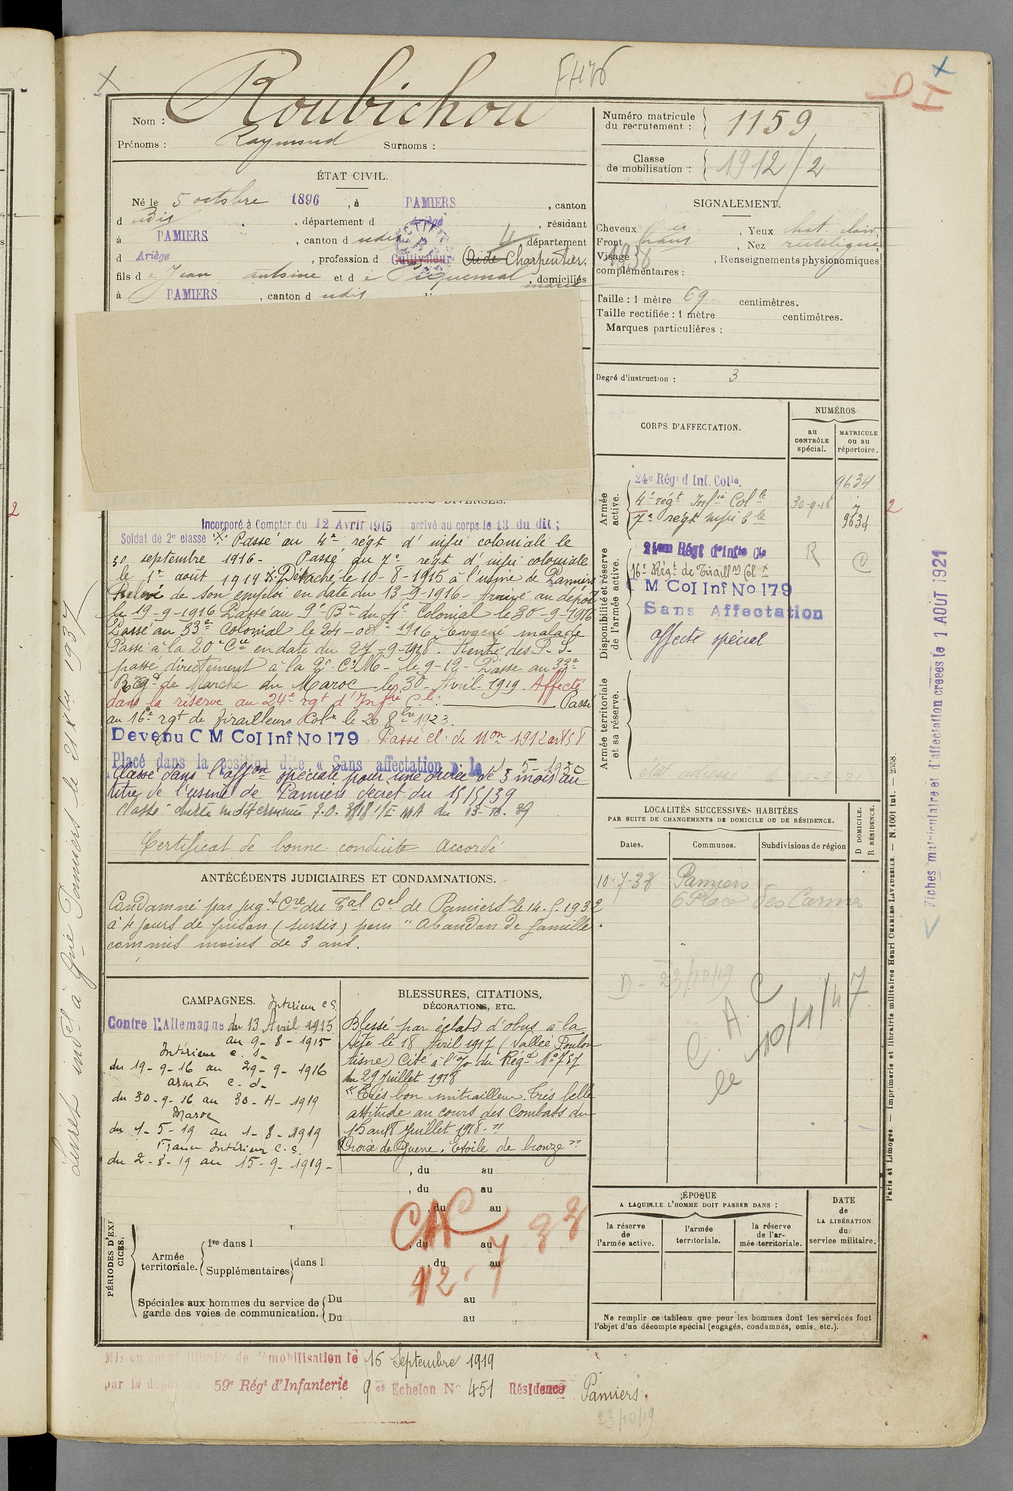 F476
Nom : Roubichou
Prénoms : Raymond Surnoms :
ÉTAT CIVIL.
Né le 5 octobre 1896, à PAMIERS, canton
d udis, département d Ariège, résidant
à PAMIERS, canton d udis, département
d Ariège, profession d Cultivateur Charpentier.
fils d e Jean antoine et d e Piquemal, domiciliés
à PAMIERS, canton d udis
Numéro matricule du recrutement : 1159
Classe de mobilisation : 1912/2
SIGNALEMENT.
Cheveux, Yeux chat. clair
Front haut, Nez rectiligne
Visage, Renseignements physionomiques
complémentaires :
Taille : 1 mètre 69 centimètres.
Taille rectifiée : 1 mètre centimètres.
Marques particulières :
Degré d'instruction : 3
CORPS D'AFFECTATION.
NUMÉROS
au CONTRÔLE spécial.
MATRICULE ou au répertoire.
Armée active.
24e Régt d Inf. Colle. 9634
4e régt Infie Colle 30-9-16 "
7e régt infie Cle 9634
Disponibilité et réserve de l'armée active.
24eme Régt d'Infie Cle R
16e Régt de Tiraillrs Col
C M Col Inf No 179
Sans Affectation
affecté spécial
Armée territoriale et sa réserve.
Incorporé à Compter du 12 Avril 1915 arrivé au corps le 13 du dit ;
Soldat de 2e classe. Passé au 4e régt d'infie coloniale le
30 septembre 1916. Passé au 7e regt d'infie coloniale
le 1er aout 1919. Détaché le 10-8-1915 à l'usine de Pamiers
Relevé de son emploi en date du 13-9-1916. Arrivé au dépôt
le 19-9-1916 Passé au 9e Bon du 4e Colonial le 30-9-1916
Passé au 33e Colonial le 24-oct-1916, évacué malade
Passé à la 20e Cie en date du 27-9-1918. Rentré des P.S.
passé directement à la 2e C.M. le 9-12- Passé au 33e
Régt de Marche du Maroc le 30 Avril 1919. Affecté
dans la réserve au 24e rgt d'Infie Cle. Passé
au 16e rgt de tirailleurs Colx le 26 8bre 1923.
Devenu C M Col Inf No 179 Passé cl. de mon 1912 art 58
Placé dans la Position dite « Sans affectation » le 1-5-1930
Classé dans l'affon spéciale pour une durée de 3 mois au
titre de l'usine de Pamiers décret du 15/5/39
Passé durée indéterminée
Certificat de bonne conduite accordé
ANTÉCÉDENTS JUDICIAIRES ET CONDAMNATIONS.
Condamné par jugt Cre du Tal Cel de Pamiers le 14.5.1932
à 4 jours de prison (sursis) pour "abandon de famille
commis moins de 3 ans.
LOCALITÉS SUCCESSIVES HABITÉES
PAR SUITE DE CHANGEMENTS DE DOMICILE OU DE RÉSIDENCE.
Dates. Communes. Subdivisions de région D DOMICILE. R RÉSIDENCE.
10-7-38 Pamiers
6 Place des Carmes
D - 23/10/19
C. A. C
le 10/1/47
CAMPAGNES.
Intérieur c S
Contre l'Allemagne du 13 Avril 1915
au 9-8-1915
Intérieur c. s.
du 19-9-16 au 29-9-1916
armées c. d.
du 30-9-16 au 30-4-1919
Maroc
du 1-5-19 au 1-8-1919
France Intérieur C.S.
du 2-8-19 au 15-9-1919-
BLESSURES, CITATIONS,
DÉCORATIONS, ETC.
Blessé par éclats d'obus à la
tête le 18 Avril 1917 (Vallée Foulon
Aisne) Cité à l'o/ du Régt No 757
du 29 juillet 1918
"Très bon mitrailleur. Très belle
attitude au cours des Combats du
15 au 18 Juillet 1918."
Croix de Guerre. Etoile de bronze"
, du au
, du au
, du au
, du au
, du au
CAC
12-7 38
PÉRIODES D'EXERCICES.
Armée territoriale.
1re dans l
Supplémentaires dans l
Spéciales aux hommes du service de garde des voies de communication.
Du au
Du au
ÉPOQUE
A LAQUELLE L'HOMME DOIT PASSER DANS :
la réserve de l'armée active.
l'armée territoriale.
la réserve de l'armée territoriale.
DATE de LA LIBÉRATION du service militaire.
Ne remplir ce tableau que pour les hommes dont les services font
l'objet d'un décompte spécial (engagés, condamnés, omis, etc.).
Mis en congé illimité de démobilisation le 16 Septembre 1919
par le dépôt du 59e Régt d'Infanterie 9e Echelon No 451 Résidence Pamiers.
23/10/19
Paris et Limoges. — Imprimerie et librairie militaires Henri CHARLES-LAVAUZELLE. — N. 1001 int.
Fiches matriculaire et d'affectation créées le 1 AOÛT 1921